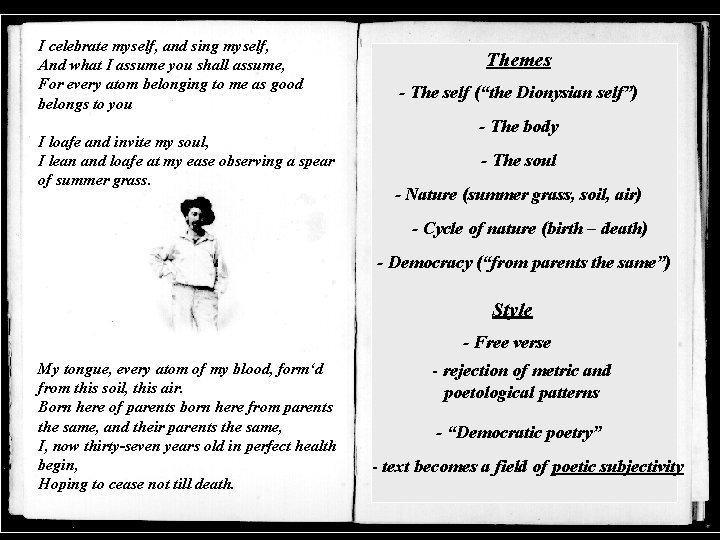 I celebrate myself, and sing myself,
And what I assume you shall assume,
For every atom belonging to me as good
belongs to you
I loafe and invite my soul,
I lean and loafe at my ease observing a spear
of summer grass.
My tongue, every atom of my blood, form‘d
from this soil, this air.
Born here of parents born here from parents
the same, and their parents the same,
I, now thirty-seven years old in perfect health
begin,
Hoping to cease not till death.
Themes
- The self (“the Dionysian self”)
- The body
- The soul
- Nature (summer grass, soil, air)
- Cycle of nature (birth – death)
- Democracy (“from parents the same”)
Style
- Free verse
- rejection of metric and
poetological patterns
- “Democratic poetry”
- text becomes a field of poetic subjectivity